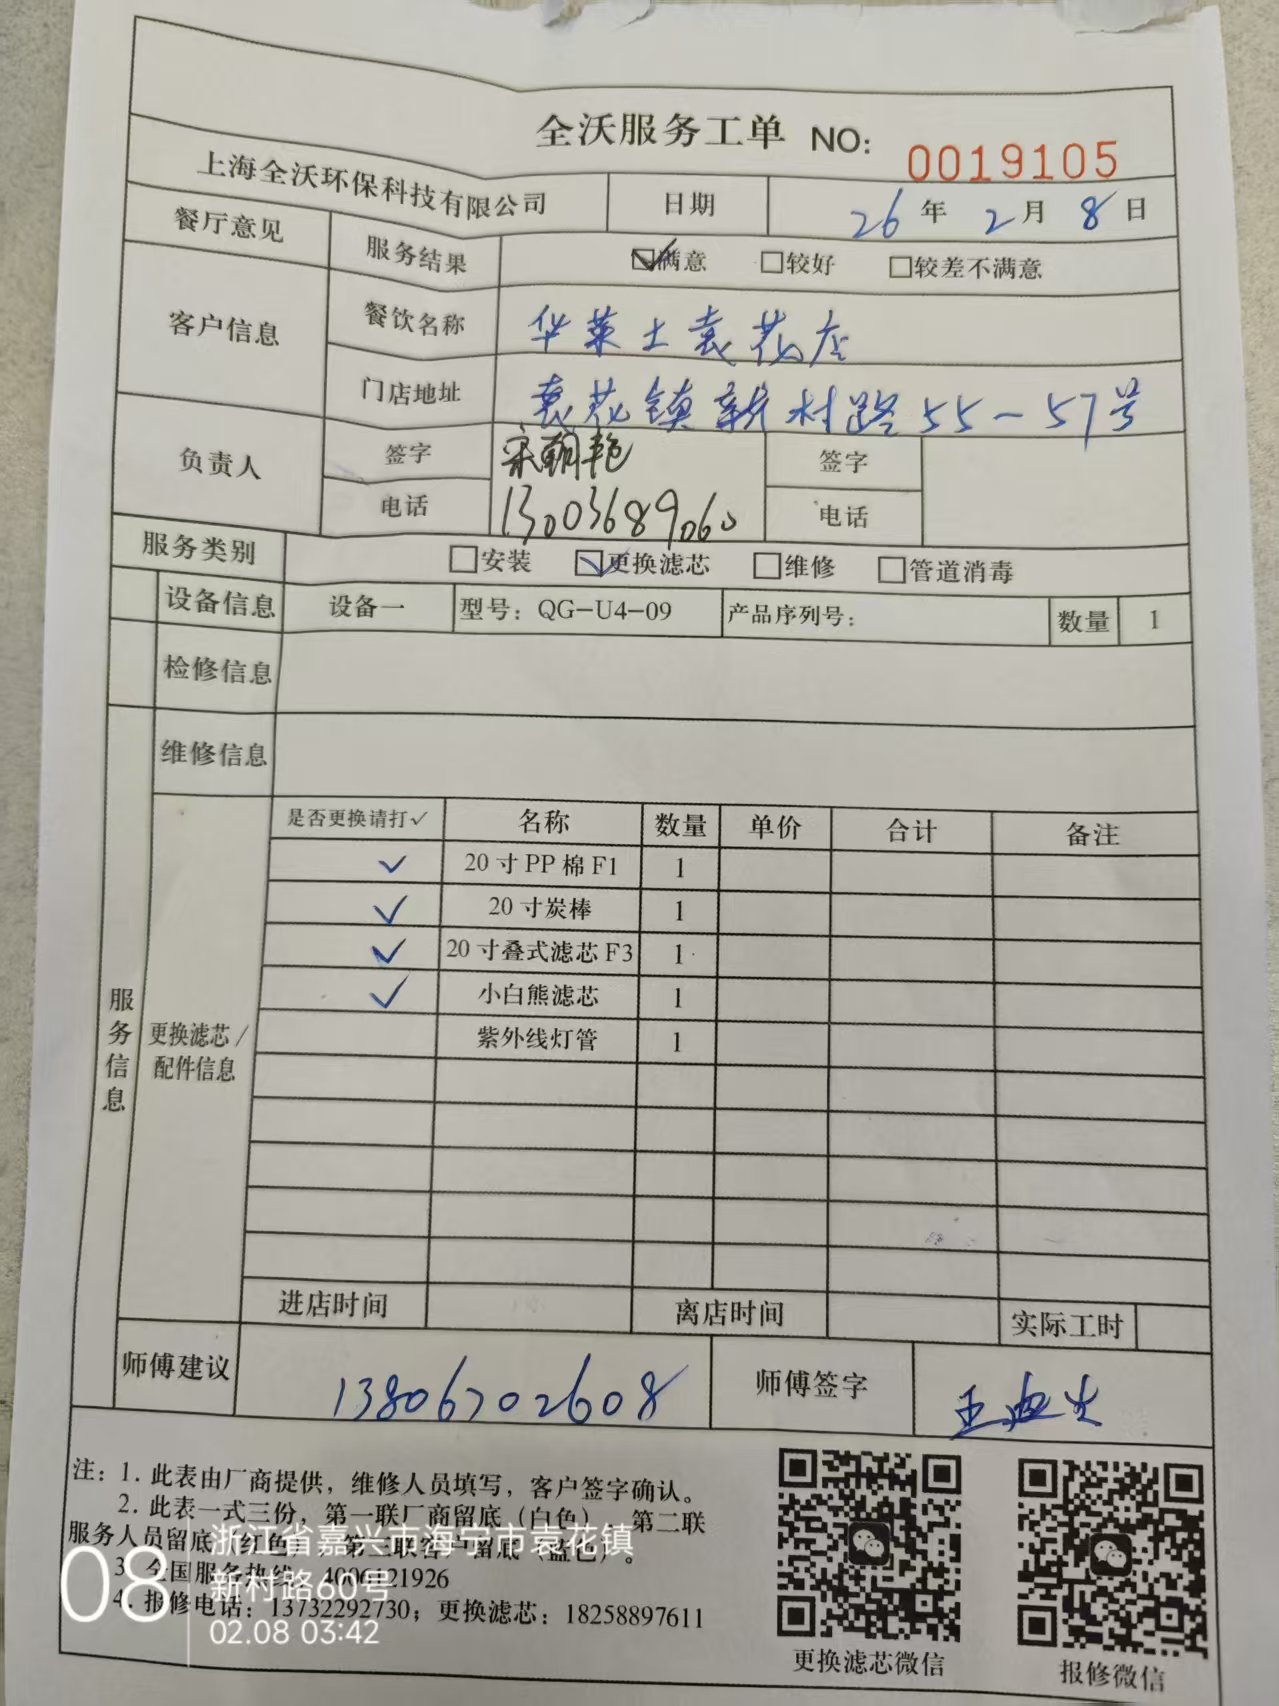 全沃服务工单 NO: 0019105
上海全沃环保科技有限公司 日期 26年2月8日
餐厅意见 服务结果 ☑满意 □较好 □较差不满意
客户信息 餐饮名称 华莱士袁花店
门店地址 袁花镇新村路55-57号
负责人 签字 宋朝艳 签字
电话 13003689060 电话
服务类别 □安装 ☑更换滤芯 □维修 □管道消毒
设备信息 设备一 型号：QG-U4-09 产品序列号： 数量 1
检修信息
维修信息
服务信息
更换滤芯/配件信息
是否更换请打✓ 名称 数量 单价 合计 备注
✓ 20寸PP棉F1 1
✓ 20寸炭棒 1
✓ 20寸叠式滤芯F3 1
✓ 小白熊滤芯 1
紫外线灯管 1
进店时间 离店时间 实际工时
师傅建议 13806702608 师傅签字 王
注：1. 此表由厂商提供，维修人员填写，客户签字确认。
2. 此表一式三份，第一联厂商留底（白色） 第二联
服务人员留底（红色） 第三联客户留底（蓝色）。
3. 全国服务热线 4000121926
4. 报修电话：13732292730；更换滤芯：18258897611
更换滤芯微信 报修微信
08
浙江省嘉兴市海宁市袁花镇
新村路60号
02.08 03:42